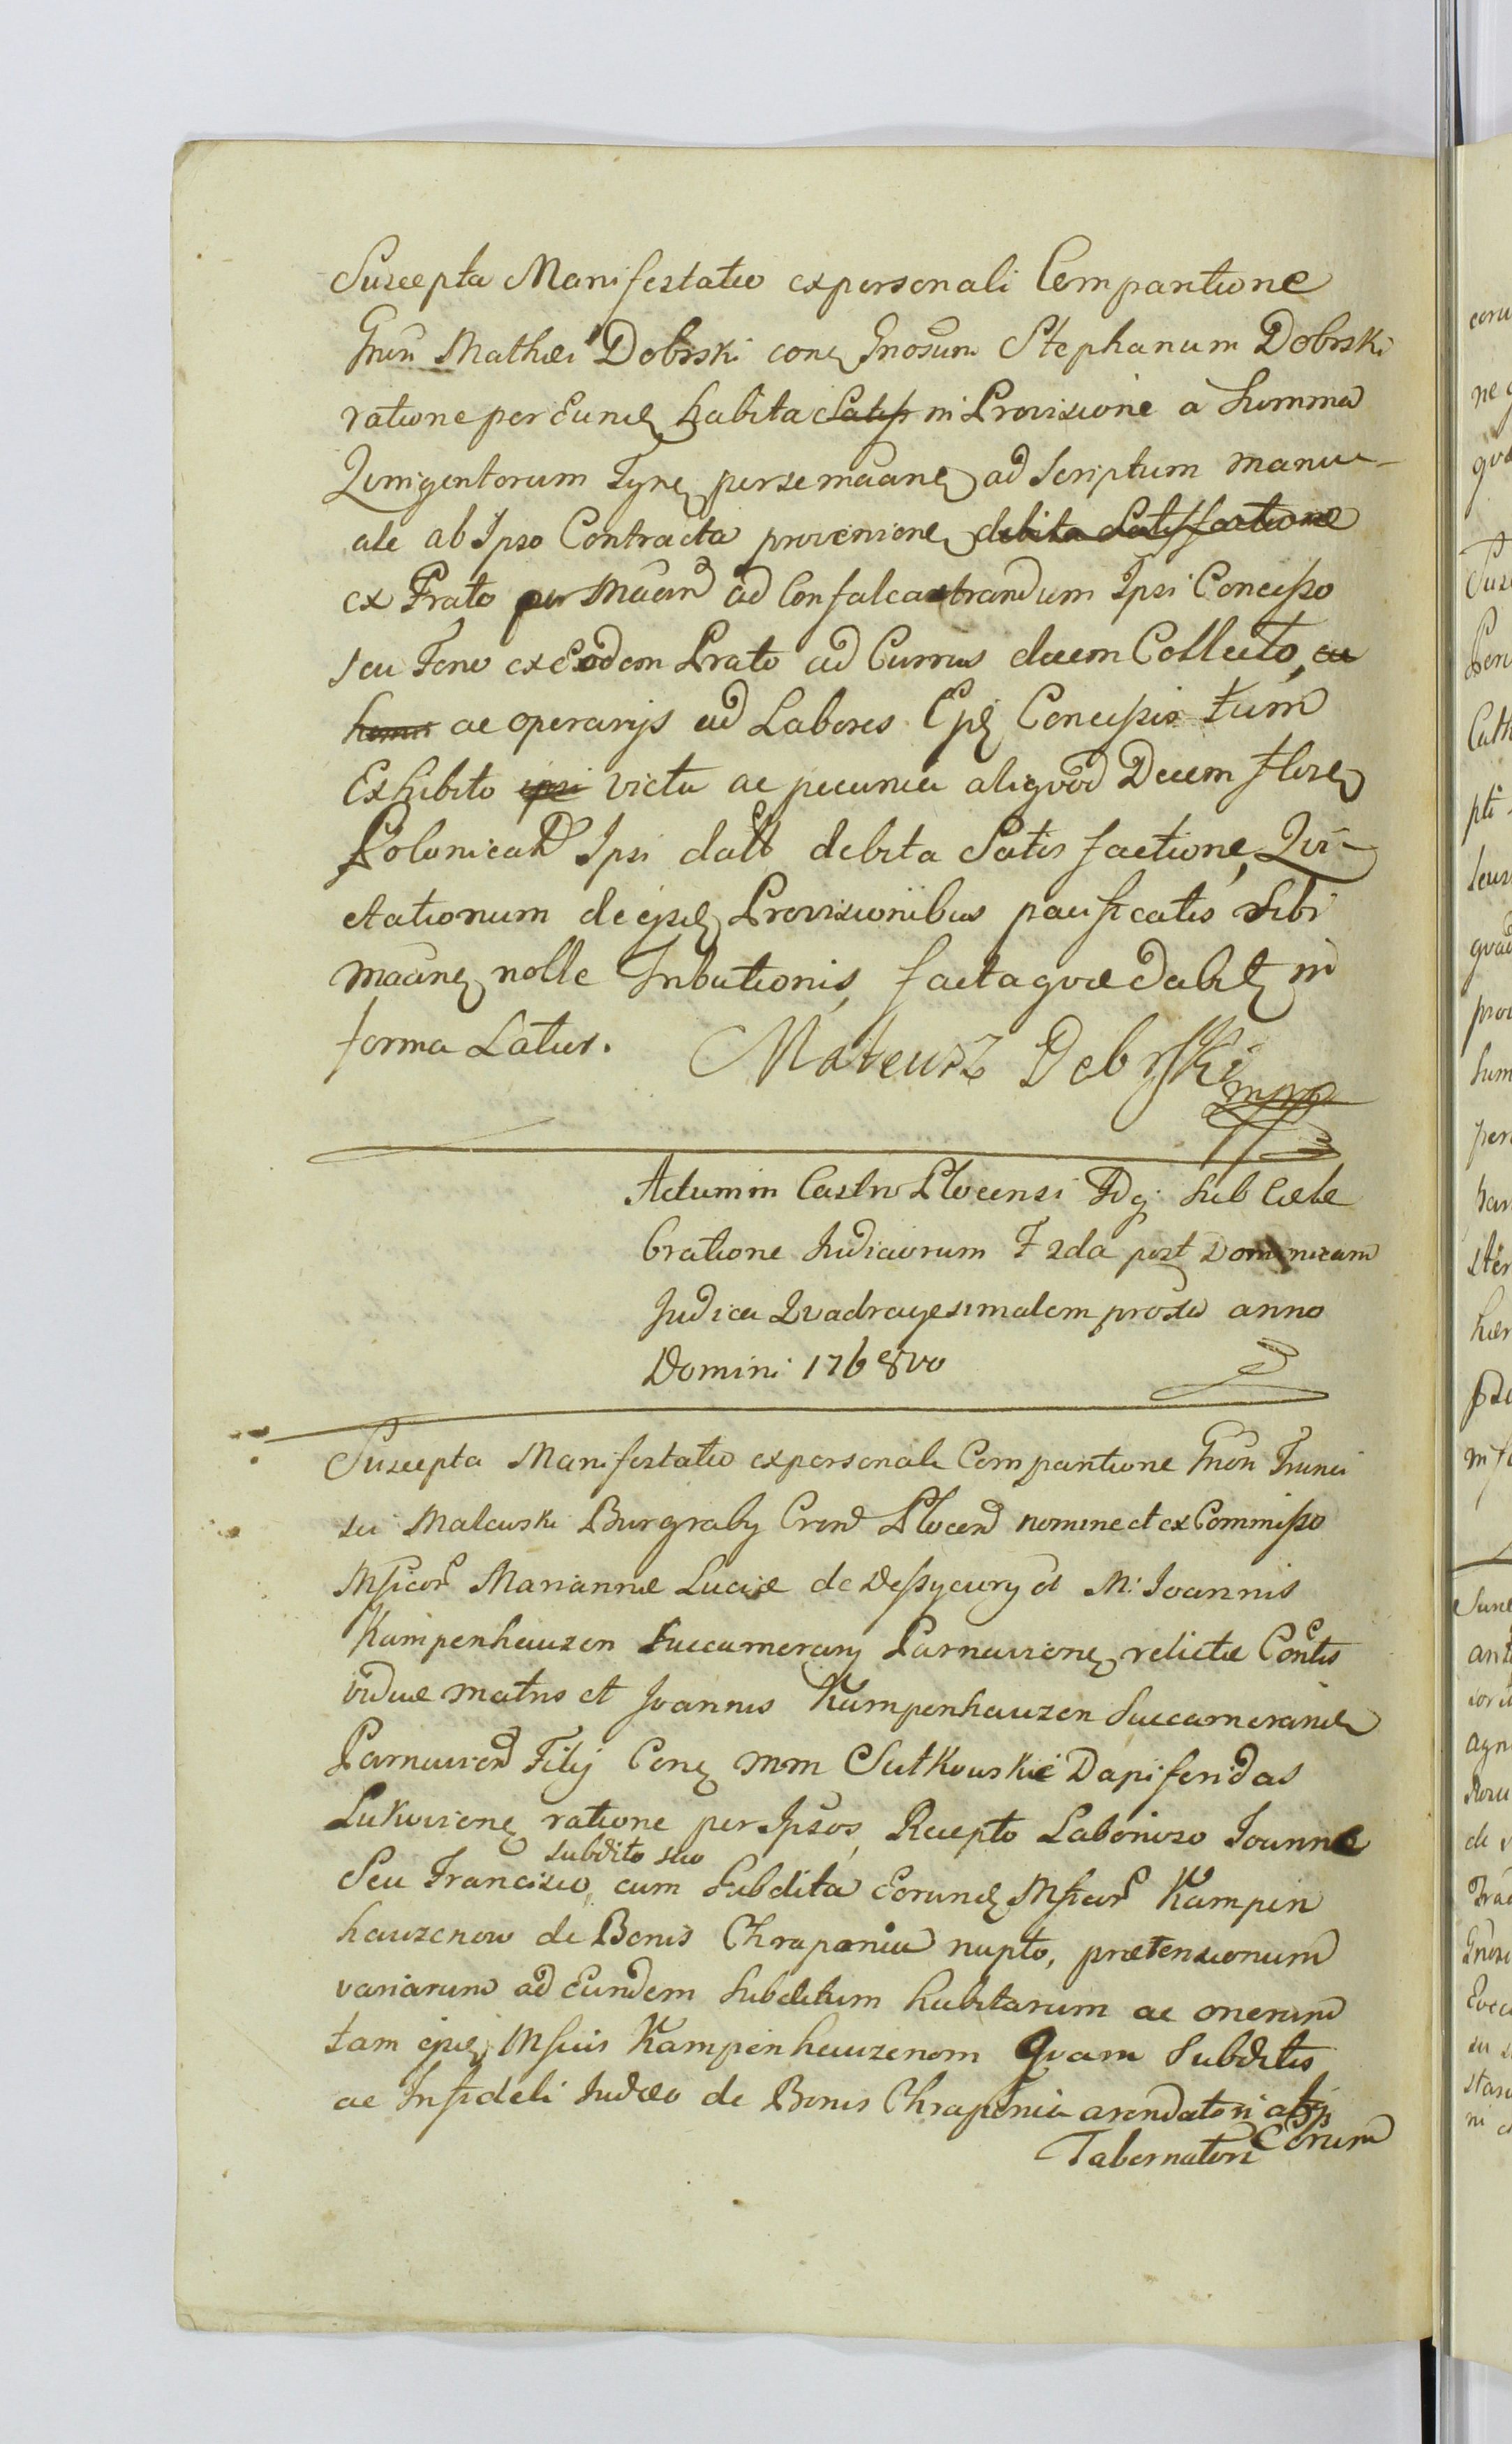 Suscepta Manifestatio ex personali Comparitione
Gnsi Mathæi Dobrski conq Gnosum Stephanum Dobrski
ratione per Eundq habita Satisf in Provisione à Summa
Quingentorum Tynq per se mãanq ad Scriptum manu-
ale ab Ipso Contracta provenienq debita Satisfactione
ex Prato per Mãan ad Confalcastrandum Ipsi Concesso
seu Feno ex Eodem Prato ad Currus decem Collecto, ac
homi ac operarijs ad Labores Ejq Concessis tum
Exhibito ipsi victu ac pecunia aliqvod Decem floreq
Polonical Ipsi datt debita Satisfactione, Qvi-
etationum de ejsdq Provisionibus pacificatis Sibi
mãanq nolle Tributionis, factaqve dabitq in
forma Latius. Mateusz Dobrski
mpp
Actum in Castro Plocensi Fdg. sub Cele
bratione Judiciorum F 2da post Dominicam
Judica Qvadragesimalem proxia anno
Domini 1768vo
Suscepta Manifestatio ex personali Comparitione Gnosi Franci
sci Malewski Burgraby Crend Plocend nomine et ex Commisso
Msicor Mariannæ Luciæ de Dessycury ol M: Joannis
Kampenhauzen Succamerarij Parnavienq relictæ Contis
viduæ matris et Joannis Kampenhauzen Succameranidq
Parnavien Filij Conq MM Sutkowskie Dapiferidas
Lukovienq ratione per Ipsos, Recepto Laborioso Joanne
subdito suo
Seu Francisco, cum Subdita Eorundq Msicor Kampen
hauzenow de Bonis Chraponia nupto, prætensionum
variarum ad Eundem Subditum habitarum ac onerum
tam ipsiq Msicis Kampenhauzenom Qvam Subditis
ac Infideli Judæo de Bonis Chraponia arendatori
Tabernatori Eorum